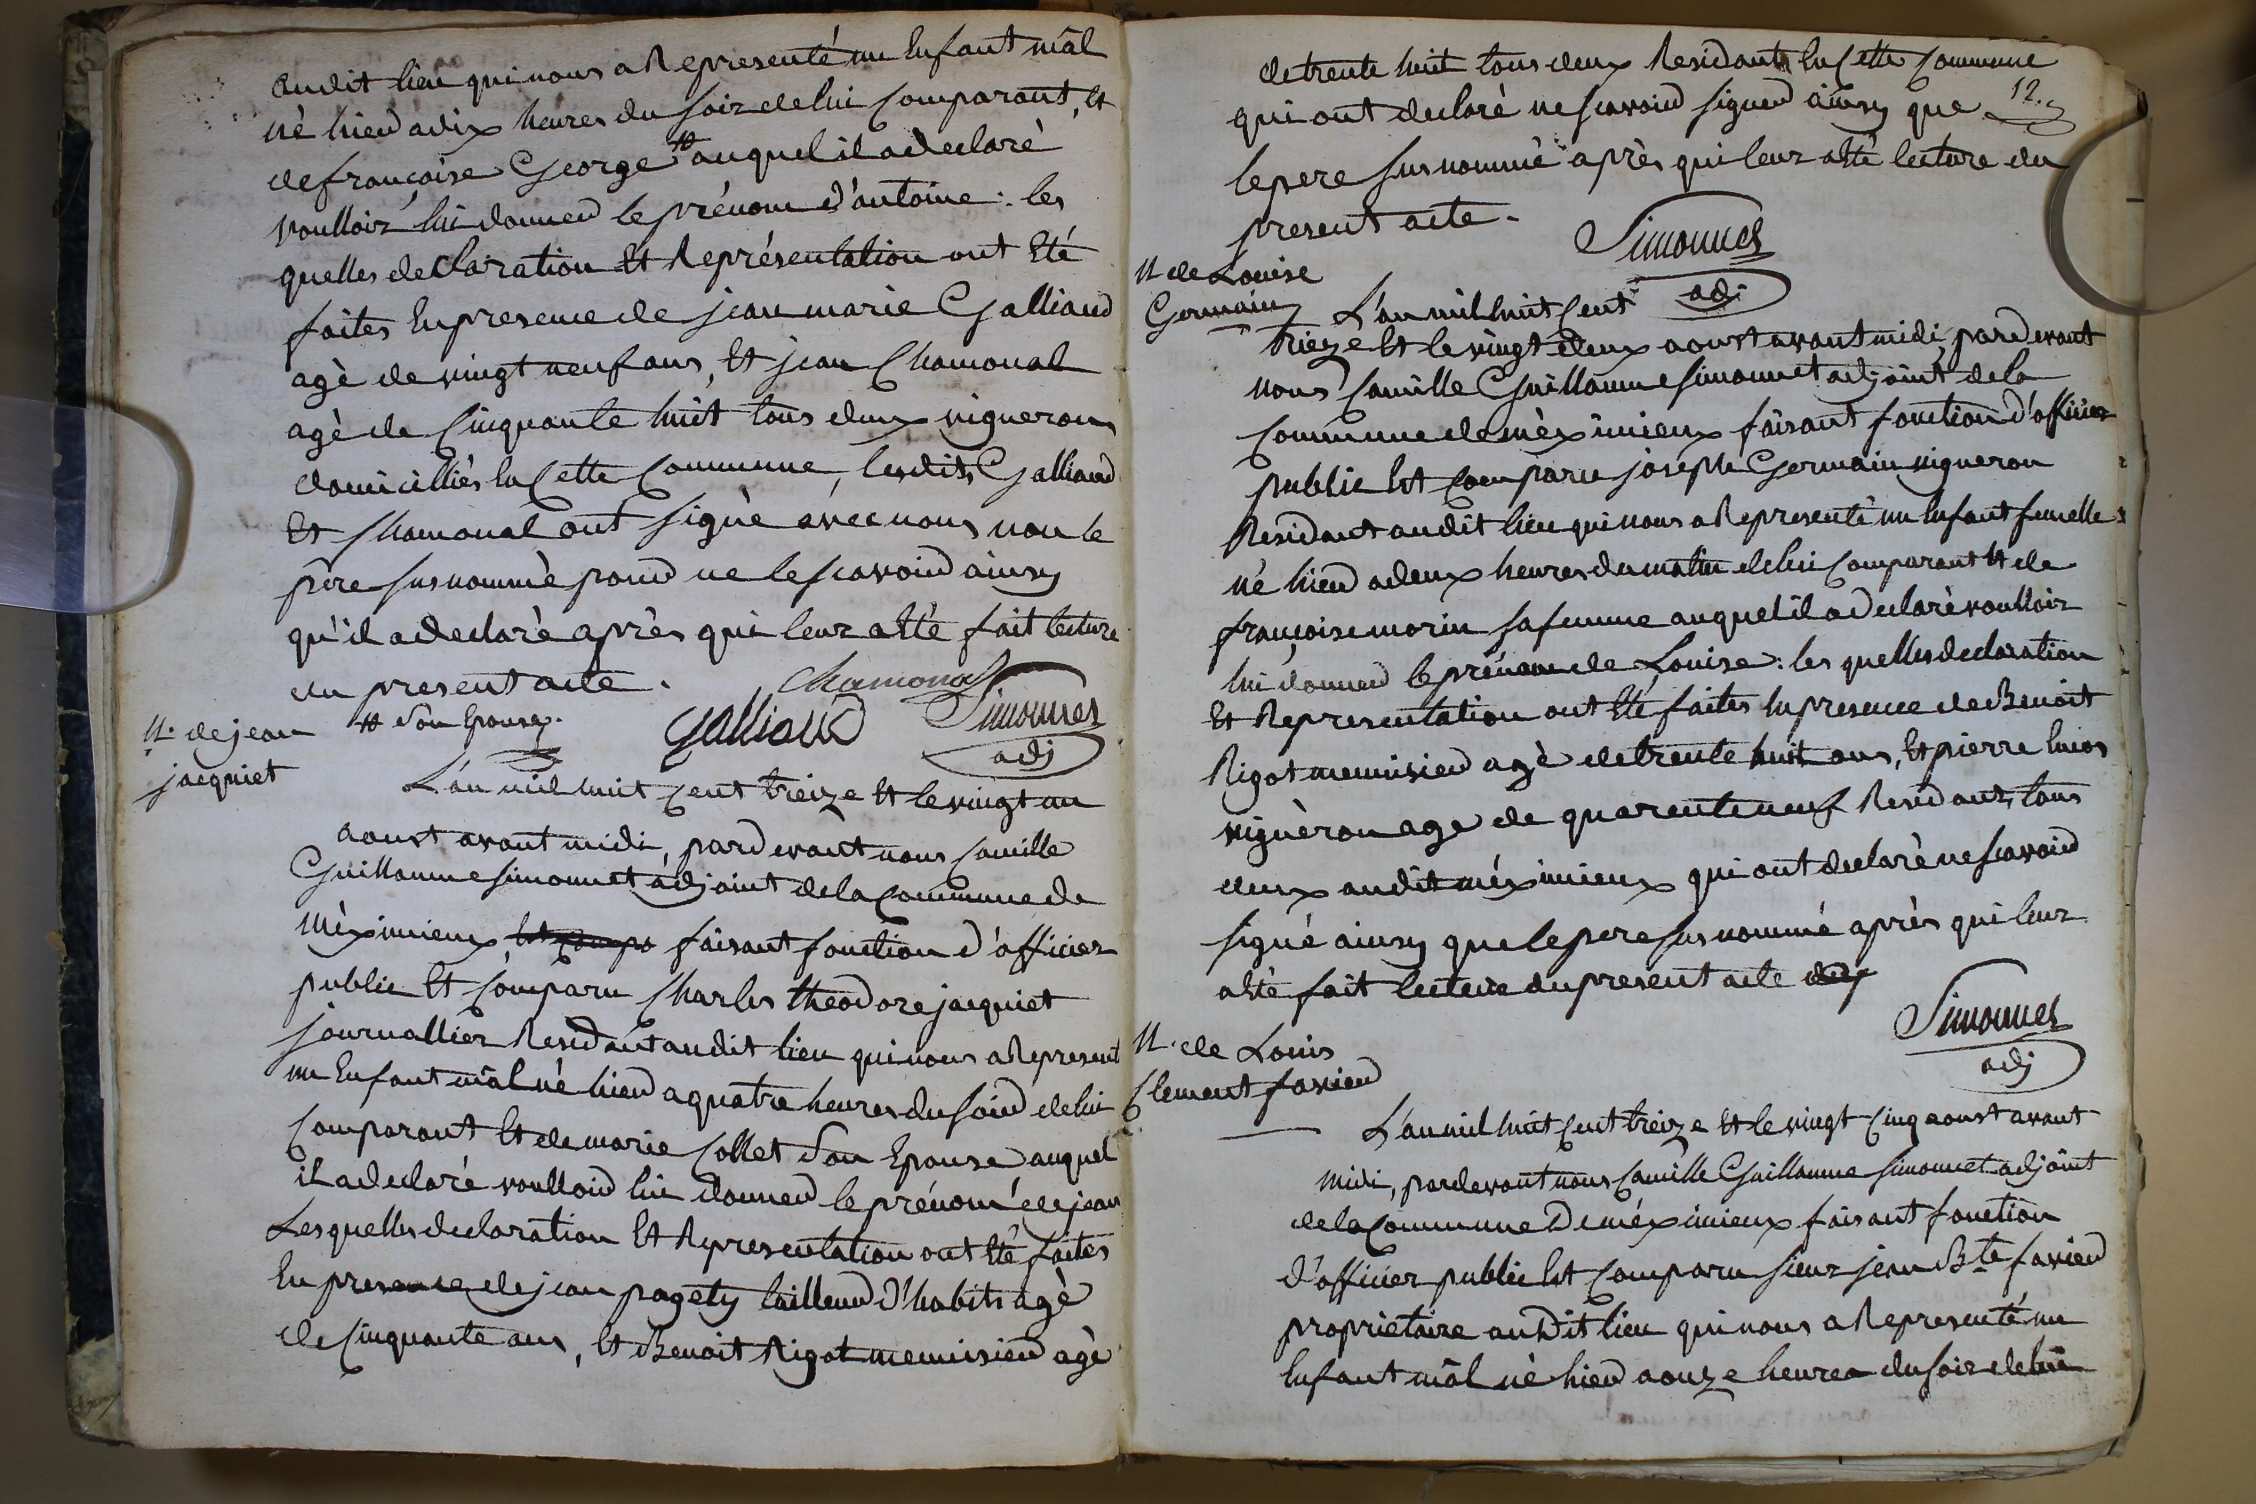 audit lieu qui nous a Representé un Enfant mâl
nè hier a dix heures du soir de lui Comparant, Et
de françoise George # auquel il a declarè
voulloir lui donner le prénom d'antoine : les
quelles declaration Et Représentation ont Eté
faites En presence de jean marie Galliand
agè de vingt neuf ans, Et jean Chamonal
agè de Cinquante huit tous deux vignerons
domicilliès En Cette Commune, lesdits Galliand
Et Chamonal ont signè avec nous non le
père susnommè pour ne le scavoir ainsy
qu'il a declarè après qui leur a Etè fait lecture
du present acte.
# Son Epouse.
Chamonal
Galliand
Simonnet
adj
N. de jean
jacquiet
L'an mil huit Cent treize Et le vingt un
aoust avant midi, pardevant nous Camille
Guillaume Simonnet adjoint de la Commune de
mèximieux Est Compa faisant fonction d'officier
public Est Comparu Charles theodore jacquiet
journallier Residant audit lieu qui nous a Represent
un Enfant mâl nè hier a quatre heures du soir de lui
Comparant Et de marie Collet Son Epouse auquel
il a declaré voulloir lui donner le prénom de jean
Lesquelles declaration Et Representation ont Eté faites
En presence de jean pagety tailleur d'habits agè
de Cinquante ans, Et Benoit Rigot menuisier agè
12.
de trente huit tous deux Residants En Cette Commune
qui ont declarè ne scavoir signer ainsy que
le pere susnommè après qui leur a Eté lecture du
present acte.
Simonnet
adj
N. de Louise
Germain
L'an mil huit Cent
treize Et le vingt deux aoust avant midi, pardevant
nous Camille Guillaume Simonnet adjoint de la
Commune de mèximieux faisant fonction d'officier
public Est Comparu joseph Germain vigneron
Residant audit lieu qui nous a Representé un Enfant femelle
né hier a deux heures du matin de lui Comparant Et de
françoise morin sa femme auquel il a declarè voulloir
lui donner le prénom de Louise : les quelles declaration
Et Representation ont Eté faites En presence de Benoit
Rigot menuisier agè de trente huit ans, Et pierre lucas
vignèron age de quarente neuf Residants tous
deux audit méximieux qui ont declarè ne scavoir
signé ainsy que le pere susnommé après qui leur
a Etè fait lecture du present acte
Simonnet
adj
N. de Louis
Clement favier
L'an mil huit Cent treize Et le vingt Cinq aoust avant
midi, pardevant nous Camille Guillaume Simonnet adjoint
de la Commune De méximieux faisant fonction
d'officier public Est Comparu sieur jean Bte favier
proprietaire audit lieu qui nous a Representé un
Enfant mâl nè hier a onze heures du soir de lui